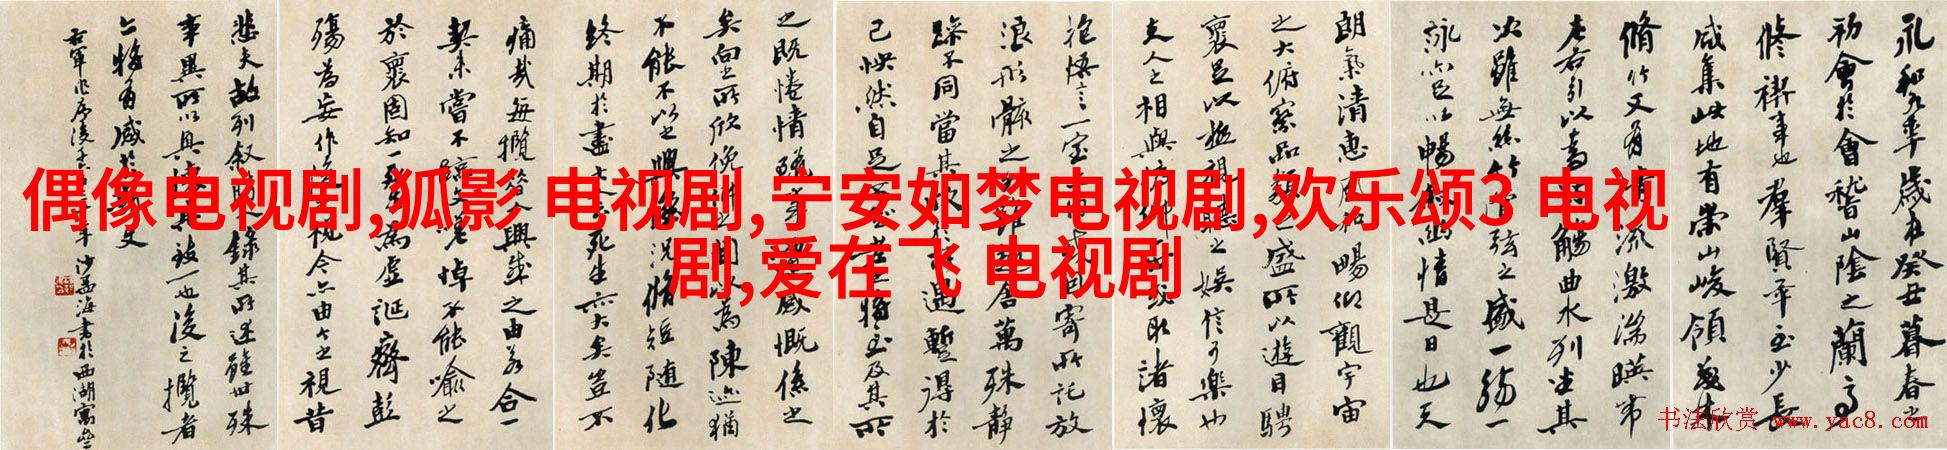 偶像电视剧,狐影 电视剧,宁安如梦电视剧,欢乐颂3 电视
剧,爱在飞 电视剧
永和九年歲在癸丑暮春之
初會於會稽山陰之蘭亭
脩禊事也羣賢畢至少長
咸集此地有崇山峻領茂林
脩竹又有清流激湍暎帶
左右引以為觴曲水列坐其
次雖無絲竹弦之盛一觴一
詠亦足以暢敘幽情是日也天
朗氣清惠風和暢仰觀宇宙
之大俯察品類之盛所以遊目騁
襄足以極視聽之娛信可樂也
夫人之相與俯仰一世或取諸懷
抱悟言一室之內或因寄所託放
浪形骸之外雖趣舍萬殊靜
躁不同當其欣於所遇暫得於
己怏然自足不知老之將至及其所
之既惓情隨事遷感慨係之
矣向之所欣俛仰之間以為陳迹猶
不能不以之興懷況脩短隨化
終期於盡古人云死生亦大矣豈不
痛哉每攬昔人興感之由若合一
契未嘗不臨文嗟悼不能喻之
於襄固知一死生為虛誕齊彭
殤為妄作後之視今亦由今之視昔
悲夫故列叙時人錄其所述雖世殊
事異所以興懷其致一也後之攬者
亦將有感於斯文
右軍作序後 年沙孟海書於西湖寓舍
书法欣赏 www.yac8.com